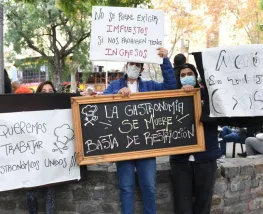 NO SE PUEDE EXIGIR
IMPUESTOS
SI NOS PROHIBEN TENER
INGRESOS
LA GASTRONOMIA
SE MUERE
BASTA DE RESTRICCION
QUEREMOS
TRABAJAR
GASTRONÓMICOS UNIDOS